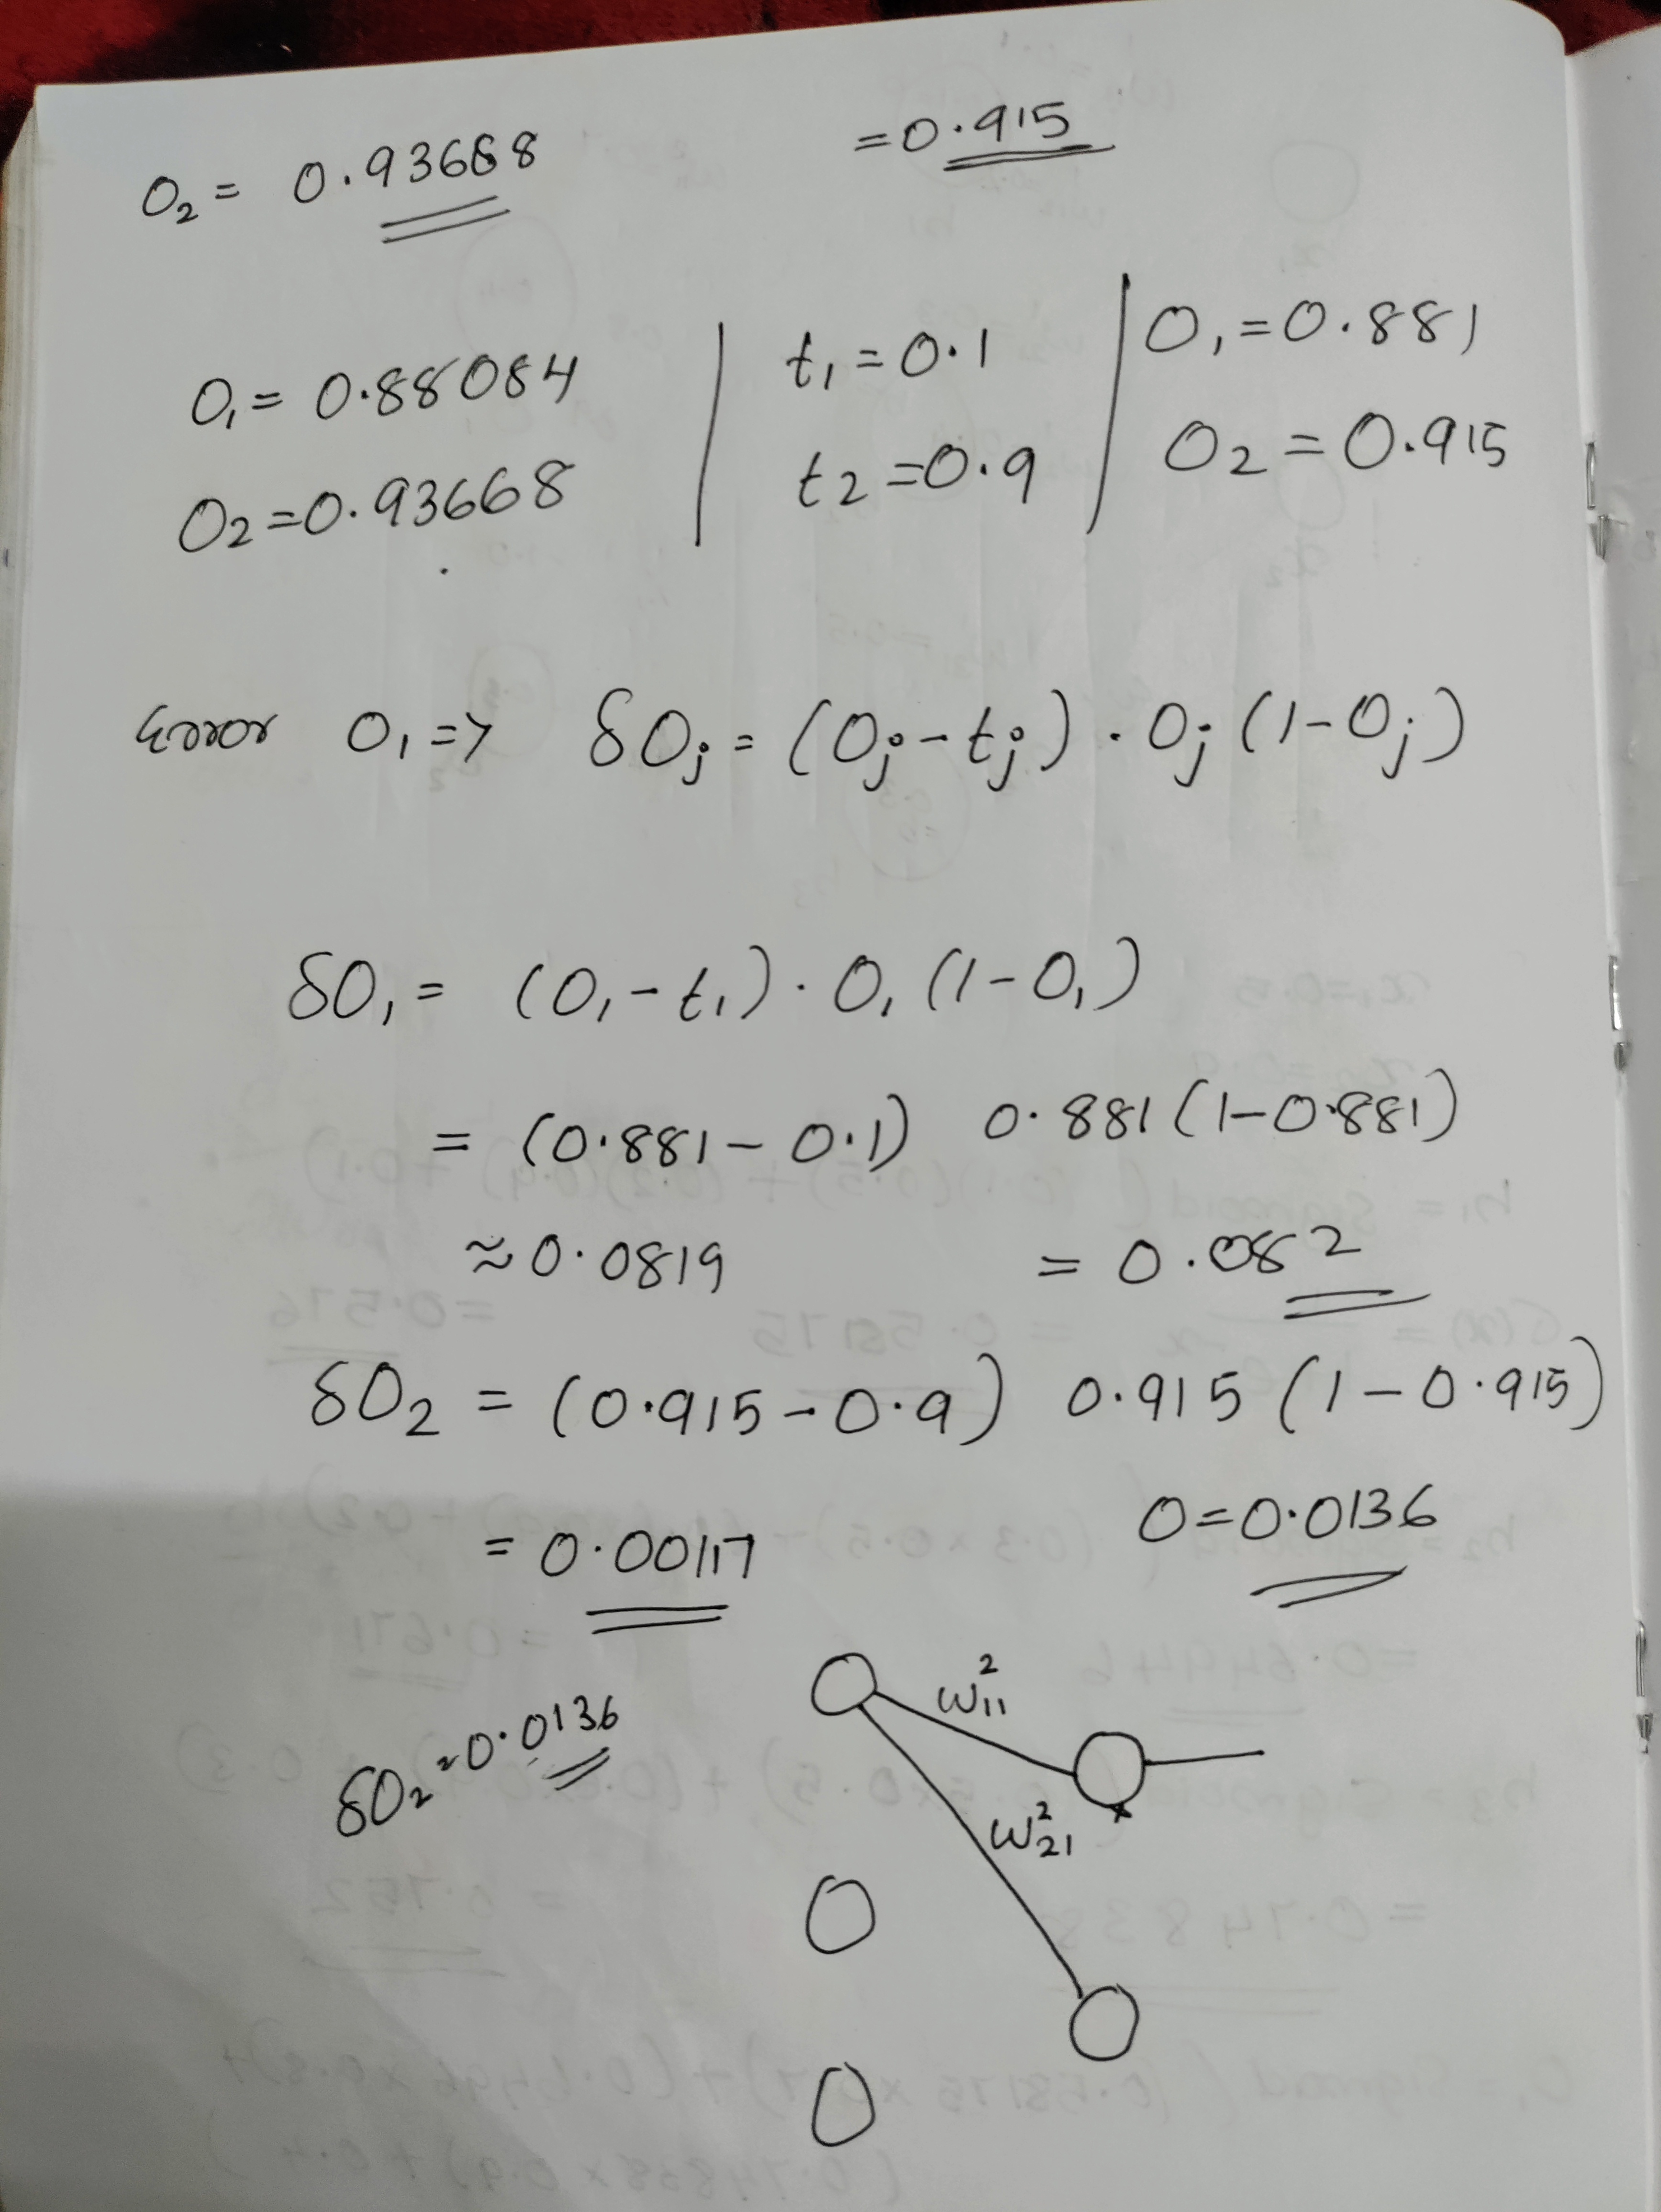 O₂ = 0.93668 = 0.915
O₁ = 0.88084 | t₁ = 0.1 | O₁ = 0.881
O₂ = 0.93668 | t₂ = 0.9 | O₂ = 0.915
Error O₁ => δOⱼ = (Oⱼ - tⱼ) . Oⱼ (1 - Oⱼ)
δO₁ = (O₁ - t₁) . O₁ (1 - O₁)
= (0.881 - 0.1) 0.881 (1 - 0.881)
≈ 0.0819 = 0.082
δO₂ = (0.915 - 0.9) 0.915 (1 - 0.915)
= 0.00117 0 = 0.0136
δO₂ = 0.0136
w²₁₁
w²₂₁